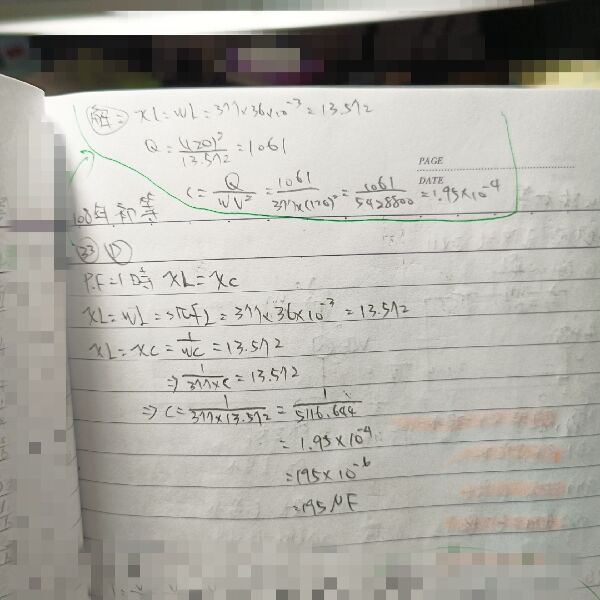 解: XL=WL=377×36×10⁻³=13.572
Q=(120)²/13.572=1061
PAGE
DATE
C=Q/WV²=1061/377×(120)²=1061/5428800=1.95×10⁻⁴
108年初等
33 D
P.F=1時 XL=XC
XL=WL=2πfL=377×36×10⁻³=13.572
XL=XC=1/WC=13.572
⇒1/377×C=13.572
⇒C=1/377×13.572=1/5116.644
=1.95×10⁻⁴
=195×10⁻⁶
=195μF